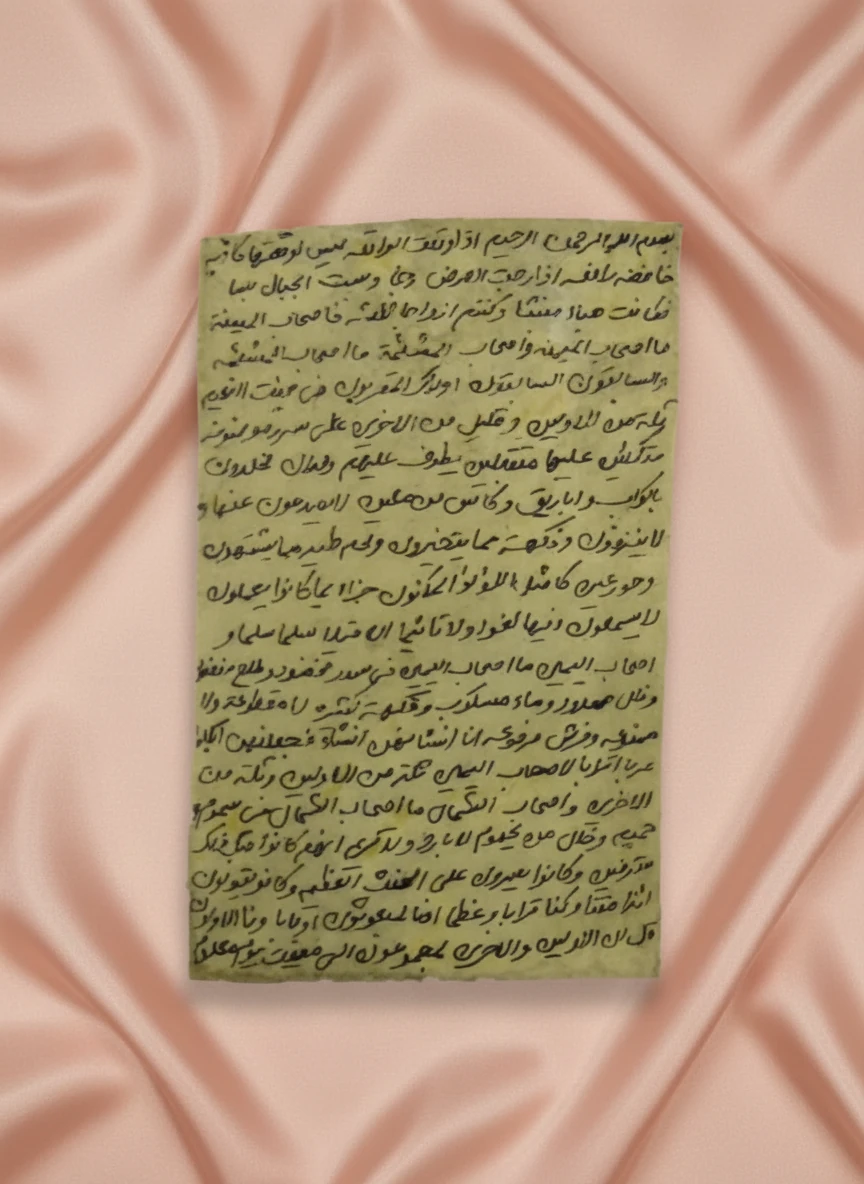 بسم الله الرحمن الرحيم اذا وقعت الواقعه ليس لوقعتها كاذبه
خافضه رافعه اذا رجت الارض رجا وبست الجبال بسا
فكانت هباء منبثا وكنتم ازواجا ثلثه فاصحاب الميمنة
ما اصحاب الميمنه واصحاب المشئمة ما اصحاب المشئمه
والسابقون السابقون اولئك المقربون في جنت النعيم
ثلة من الاولين وقليل من الاخرين على سرر موضونه
متكئين عليها متقبلين يطوف عليهم ولدان مخلدون
باكواب واباريق وكاس من معين لا يصدعون عنها و
لا ينزفون وفكهة مما يتخيرون ولحم طير مما يشتهون
وحور عين كامثل اللؤلؤ المكنون جزاء بما كانوا يعملون
لا يسمعون فيها لغوا ولا تاثيما الا قيلا سلما سلما و
اصحاب اليمين ما اصحاب اليمين في سدر مخضود وطلح منضود
وظل ممدود وماء مسكوب وفكهة كثيره لا مقطوعة ولا
ممنوعه وفرش مرفوعه انا انشانهن انشاء فجعلنهن ابكارا
عربا اترابا لاصحاب اليمين ثلة من الاولين وثلة من
الاخرين واصحاب الشمال ما اصحاب الشمال في سموم و
حميم وظل من يحموم لا بارد ولا كريم انهم كانوا قبل ذلك
مترفين وكانوا يصرون على الحنث العظيم وكانو يقولون
ائذا متنا وكنا ترابا وعظما اءنا لمبعوثون اوءابا ونا الاولون
قل ان الاولين والاخرين لمجموعون الى ميقت يوم معلوم